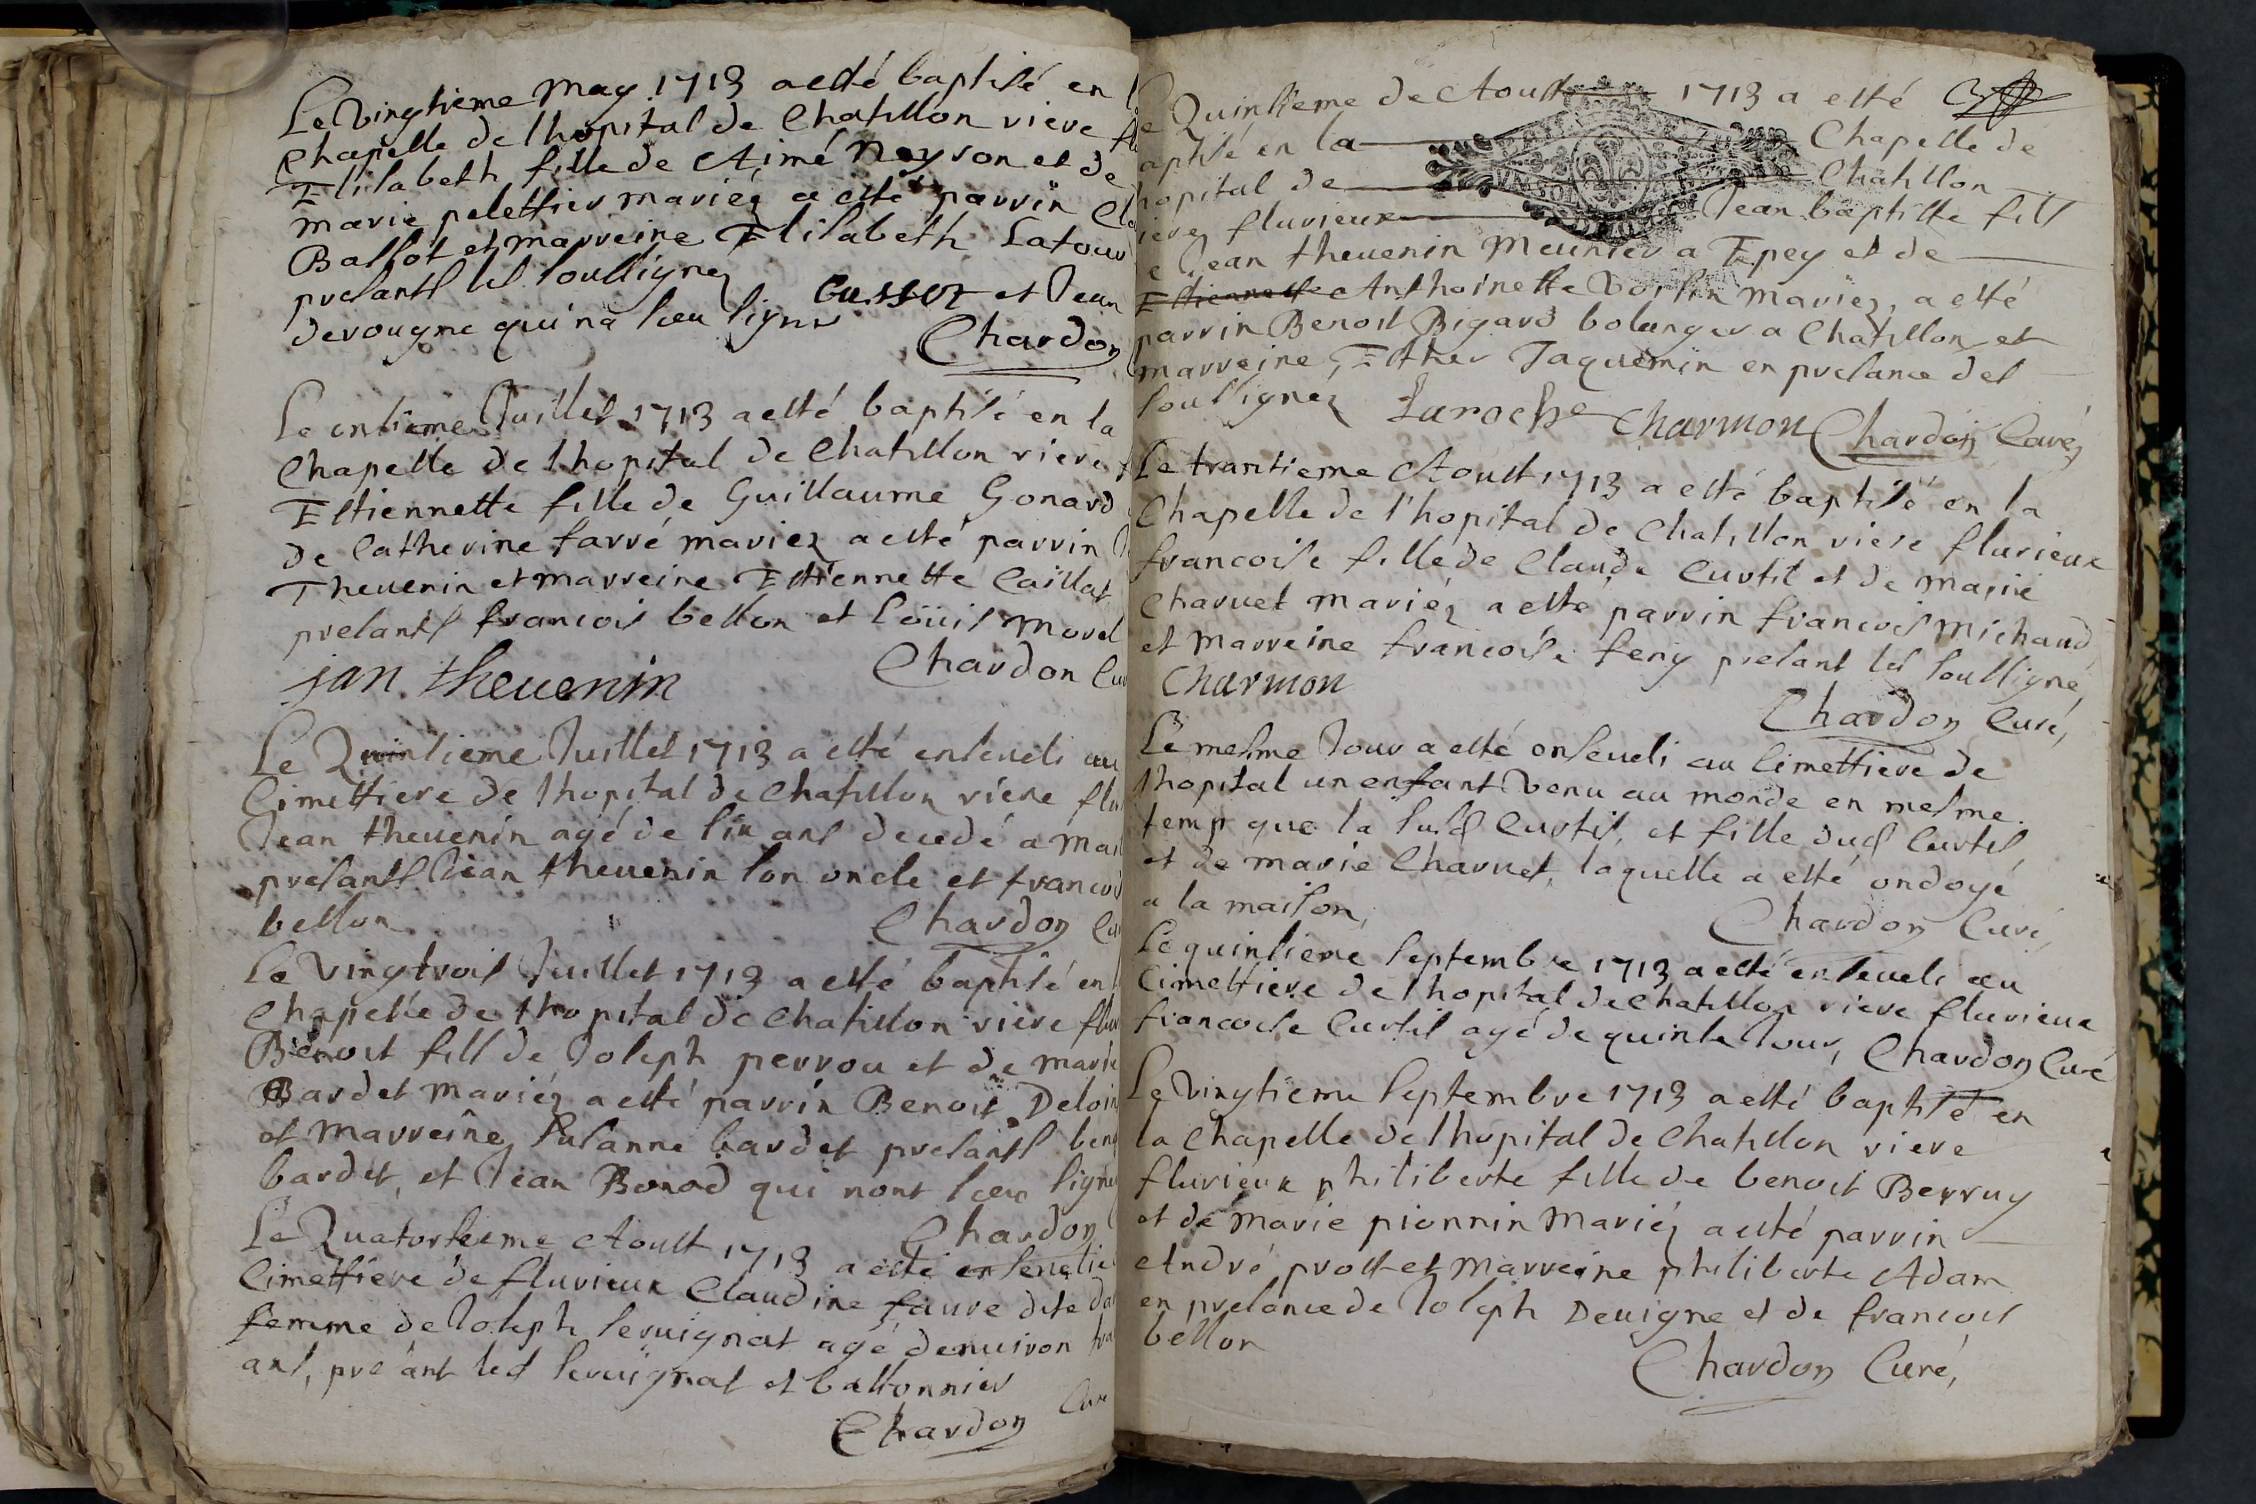 Le vingtieme may 1713 a esté baptisé en l
Chapelle de lhopital de Chatillon riere flu
Elisabeth fille de Aimé Neyron et de
marie pelettier mariez a esté parrin Cla
Ballot et marreine Elisabeth Latour
presants les soussignez Cusset et Jean
derougne qui na sceu signer
Chardon
Le onsieme Juillet 1713 a esté baptisé en la
Chapelle de lhopital de Chatillon riere f
Estiennette fille de Guillaume Gonard
de Catherine farré mariez a esté parrin J
Thevenin et marreine Estiennette Caillat
presants francois bellon et Loüis morel
jan thevenin Chardon Cur
Le Quinsieme Juillet 1713 a esté enseveli au
Cimettiere de lhopital de Chatillon riere flu
Jean thevenin agé de six ans decedé a mai
presants Jean thevenin son oncle et francois
bellon Chardon Cur
Le vingtrois Juillet 1713 a esté baptisé en l
Chapelle de lhopital de Chatillon riere flur
Benoit fils de Joseph perrou et de marie
Bardet mariez a esté parrin Benoit Deloin
et marreine Susanne bardet presants ben
bardet, et Jean Bonod qui nont sceu signer
Chardon
Le Quatorsieme Aoust 1713 a esté enseveli
Cimettiere de fluvieux Claudine favre dite da
femme de Joseph servignat agé denviron tra
ans, presant led servignat et bastonnier
Chardon Curé
e Quinsieme de Aoust 1713 a esté
aptisé en la Chapelle de
hopital de Chatillon
iere fluvieux Jean baptiste fils
e Jean thevenin Meunier a Epey et de
Estiennette Anthoinette Voisin mariez, a esté
parrin Benoit Bigard bolanger a Chatillon et
marreine, Esther Jaquemin en presance des
soussignez Laroche Charmon Chardon Curé
Le trantieme Aoust 1713 a esté baptisé en la
Chapelle de l'hopital de Chatillon riere fluvieux
francoise fille de Claude Curtil et de marie
Charvet mariez a esté parrin francois michaud
et marreine francoise feny presant les soussigné
Charmon
Chardon Curé,
Le mesme Jour a esté enseveli au Cimettiere de
lhopital un enfant venu au monde en mesme
temp que la susd Curtil, et fille dud Curtil,
et de marie Charvet, laquelle a esté ondoyé
a la maison,
Chardon Curé,
Le quinsieme septembre 1713 a esté enseveli au
Cimettiere de lhopital de Chatillon riere fluvieux
francoise Curtil agé de quinse Jour, Chardon Curé
Le vingtieme septembre 1713 a esté baptisé en
la Chapelle de lhopital de Chatillon riere
fluvieux philiberte fille de benoit Berruy
et de marie pionnin mariez a esté parrin
André prost et marreine philiberte Adam
en presance de Joseph Devigne et de francois
bellon
Chardon Curé,